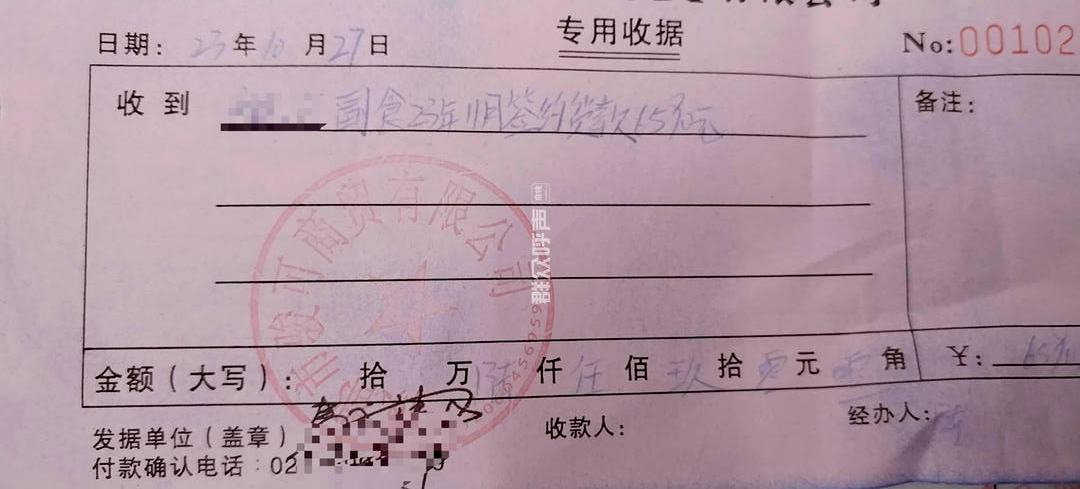 有限公司
专用收据
日期: 23年10月27日
No:00102
收到 副食23年11月签约货款65
备注:
商贸有限公司
群众呼声
金额(大写): 拾 万 陆 仟 伍 佰 玖 拾 零 元 零 角 ¥: 65
发据单位(盖章)
收款人:
经办人:
付款确认电话:02